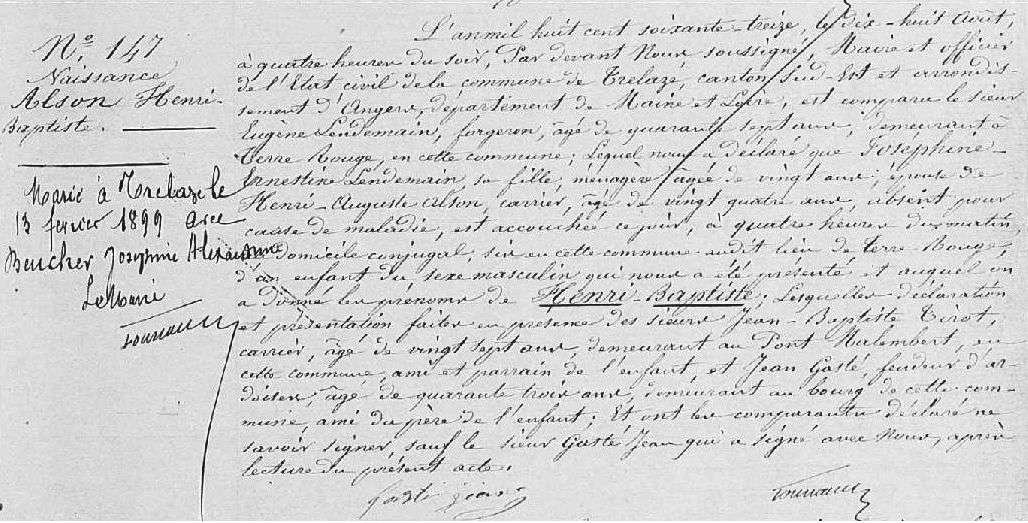 N° 147
Naissance
Alson Henri-
Baptiste.
Marié à Trelazé le
13 fevrier 1899 avec
Beucher Josephine Alexandrine
Le Maire
L'an mil huit cent soixante-treize, le dix-huit Août,
à quatre heures du soir, Par devant Nous soussigné, Maire et officier
de l'Etat civil de la commune de Trélazé, canton Sud-Est et arrondis-
sement d'Angers, département de Maine et Loire, est comparu le sieur
Eugène Lendemain, forgeron, âgé de quarante sept ans, demeurant à
Terre Rouge, en cette commune; Lequel nous a déclaré que Joséphine-
Ernestine Lendemain, sa fille, ménagère, âgée de vingt ans, épouse de
Henri-Auguste Alson, carrier, âgé de vingt quatre ans, absent pour
cause de maladie, est accouchée ce jour, à quatre heures du matin,
au domicile conjugal, sis en cette commune audit lieu de terre Rouge,
d'un enfant du sexe masculin qui nous a été présenté et auquel on
a donné les prénoms de Henri-Baptiste; Lesquelles déclaration
et présentation faites en présence des sieurs Jean-Baptiste Tirot,
carrier, âgé de vingt sept ans, demeurant au Pont Malembert, en
cette commune, ami et parrain de l'enfant, et Jean Gasté, fendeur d'ar-
doises, âgé de quarante trois ans, demeurant au bourg de cette com-
mune, ami du père de l'enfant; Et ont les comparants déclaré ne
savoir signer, sauf le sieur Gasté Jean qui a signé avec Nous, après
lecture du présent acte.
gasté jean